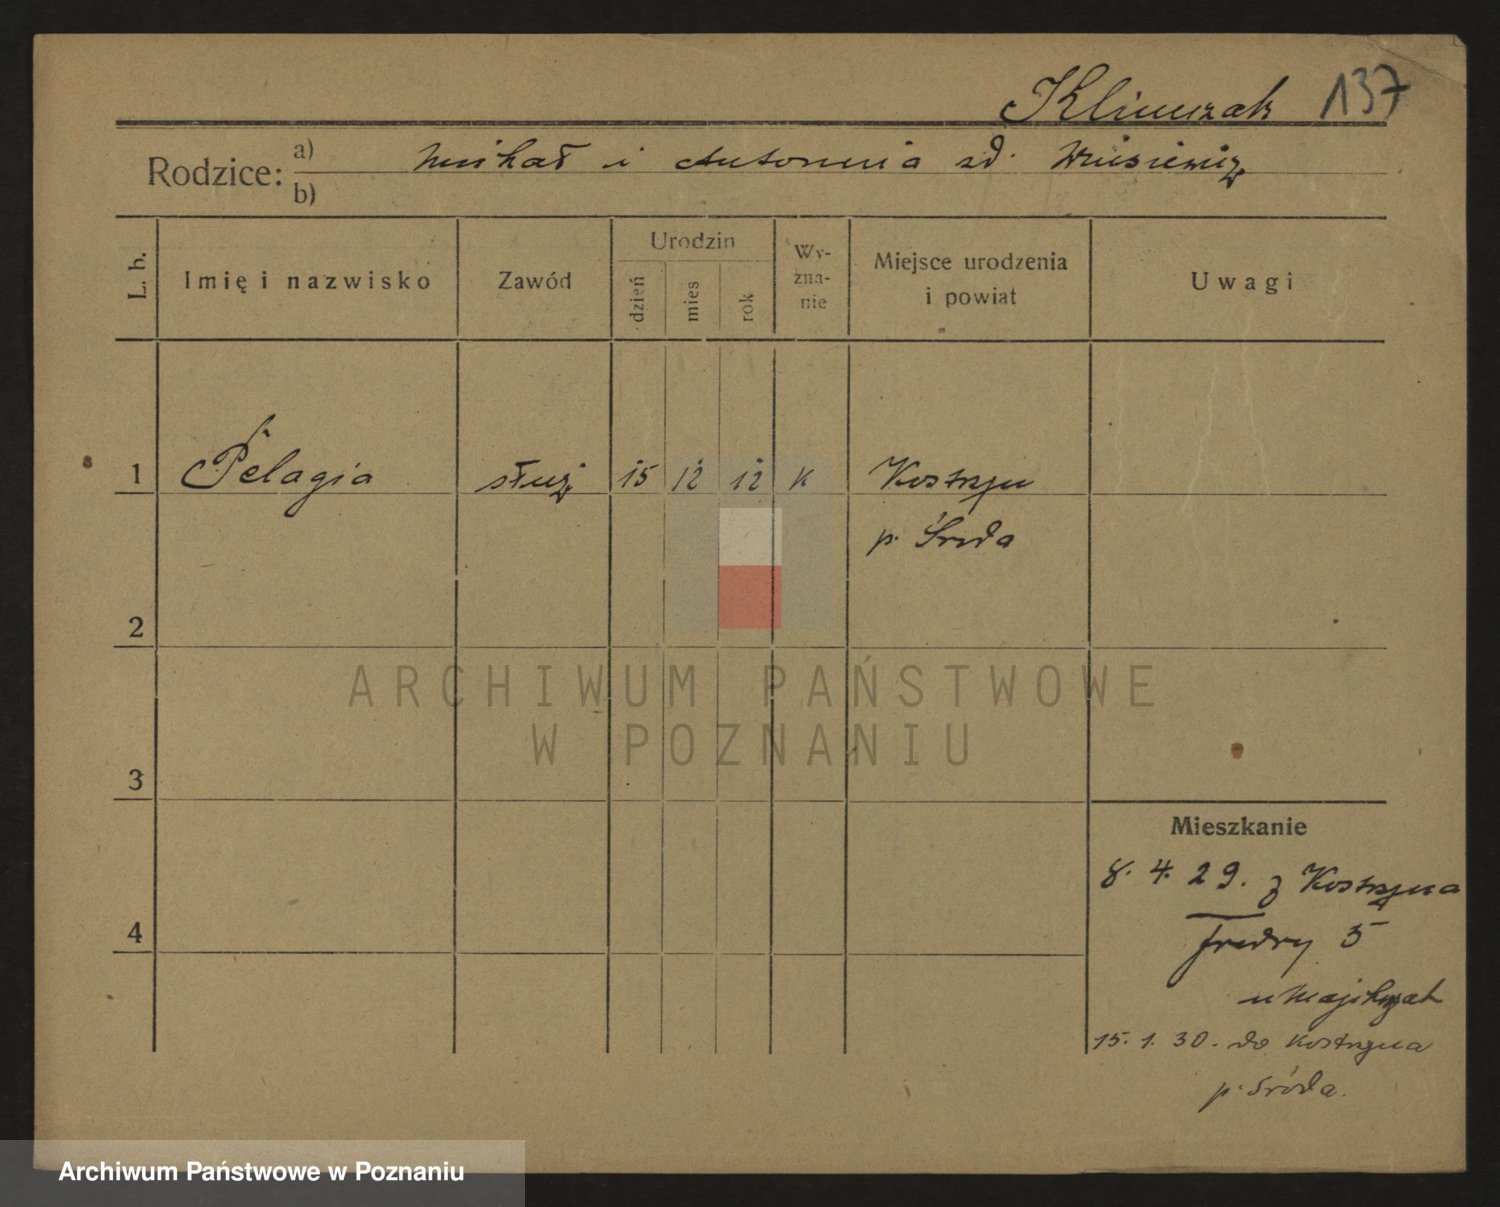 Klimczak 137
Rodzice: a) Michał i Antonina zd.
b)
L. b.
Imię i nazwisko
Zawód
Urodzin
dzień
mies
rok
Wy-
zna-
nie
Miejsce urodzenia
i powiat
Uwagi
1 Pelagja służ 15 12 12 K Kostrzyn
p. Środa
2
ARCHIWUM PAŃSTWOWE
W POZNANIU
3
Mieszkanie
8. 4. 29. z Kostrzyna
4
Fredry 5
u Majchrzak
15. 1. 30. do Kostrzyna
p. Środa.
Archiwum Państwowe w Poznaniu